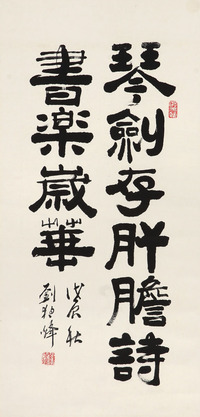 琴劍存肝膽詩
書樂歲華
戊辰秋
劉炳森